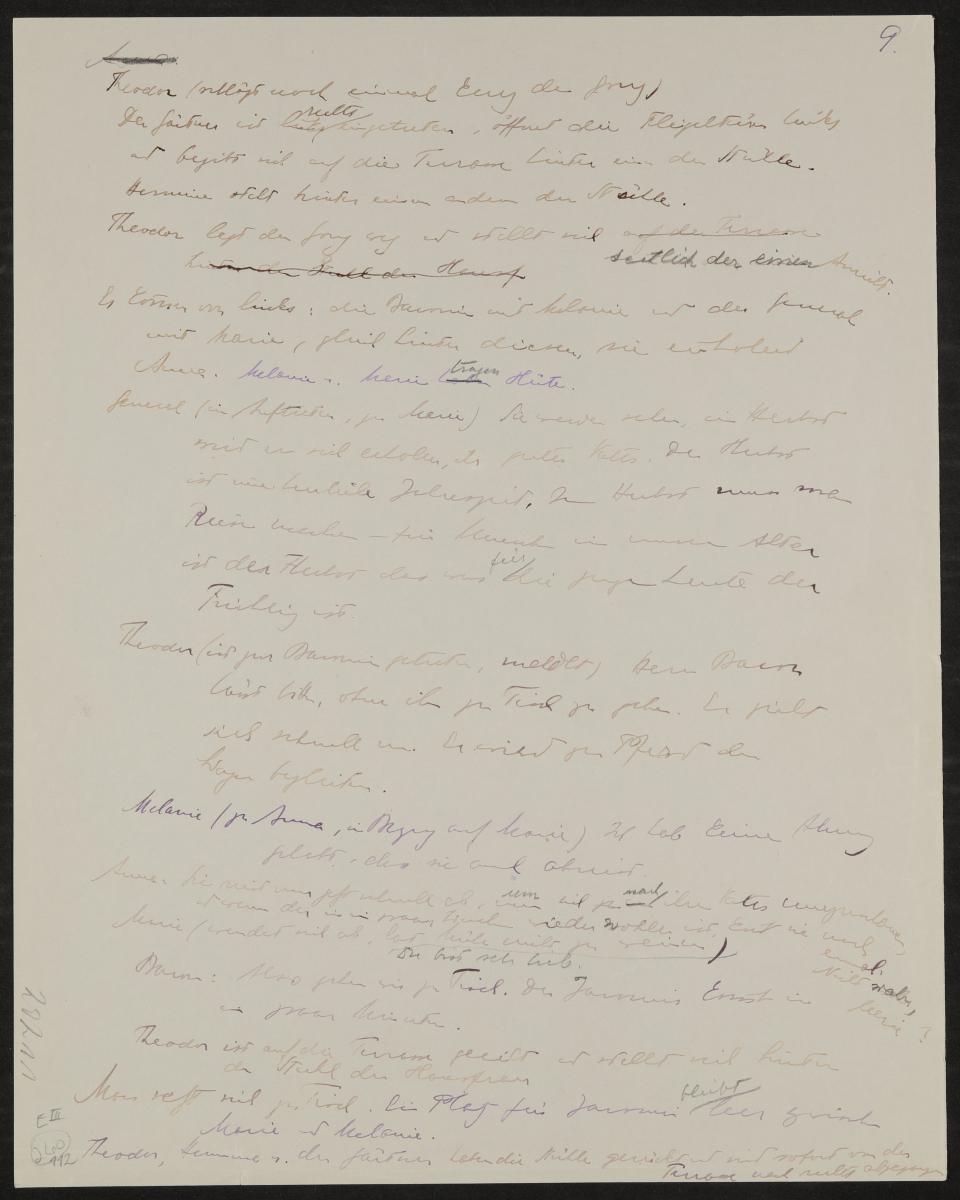 9.
Anna.
Theodor (schlägt noch einmal kurz den Gong)
rechts
Der Gärtner ist eingetreten, öffnet die Flügeltüren links
und begibt sich auf die Terrasse hinter einen der Stühle.
Hermine steht hinter einem andern der Stühle.
Theodor legt den Gong weg und stellt sich auf der Terrasse
seitlich der einen Anricht.
hinter den Stuhl der Hausfrau
Es kommen von links: die Baronin mit Melanie und der General
mit Marie, gleich hinter diesen, sie einholend
Anna. Melanie u. Marie tragen Hüte.
General (im Auftreten, zu Marie) Sie werden sehen, im Herbst
wird er sich erholen, Ihr guter Vater. Der Herbst
ist eine herrliche Jahreszeit. Im Herbst muss man
Reisen machen – für Menschen in unserm Alter
ist der Herbst das was für die jungen Leute der
Frühling ist.
Theodor (ist zur Baronin getreten, meldet) Herr Baron
lässt bitten, ohne ihn zu Tisch zu gehen. Er zieht
sich schnell um. Er wird zu Pferd den
Wagen begleiten.
Melanie (zu Anna, in Bezug auf Marie) Ich hab keine Ahnung
gehabt, dass sie auch abreist.
Anna. Sie reist uns jetzt schnell ab, um sich zu ihrem Vater
und wenn der in ein paar Wochen wieder wohler ist, kommt sie noch
einmal. Nicht wahr, Marie?
Marie (wendet sich ab, um nicht zu weinen)
Du bist sehr lieb.
Baronin: Also gehen wir zu Tisch. Der Jaromir kommt in
ein paar Minuten.
Theodor ist auf die Terrasse geeilt und stellt sich hinter
den Stuhl der Hausfrau
Man setzt sich zu Tisch. Ein Platz für Jaromir bleibt leer zwischen
Marie und Melanie.
Theodor, Hermine u. der Gärtner haben die Stühle gerückt und sind sofort von der
Terrasse nach rechts abgegangen
E III